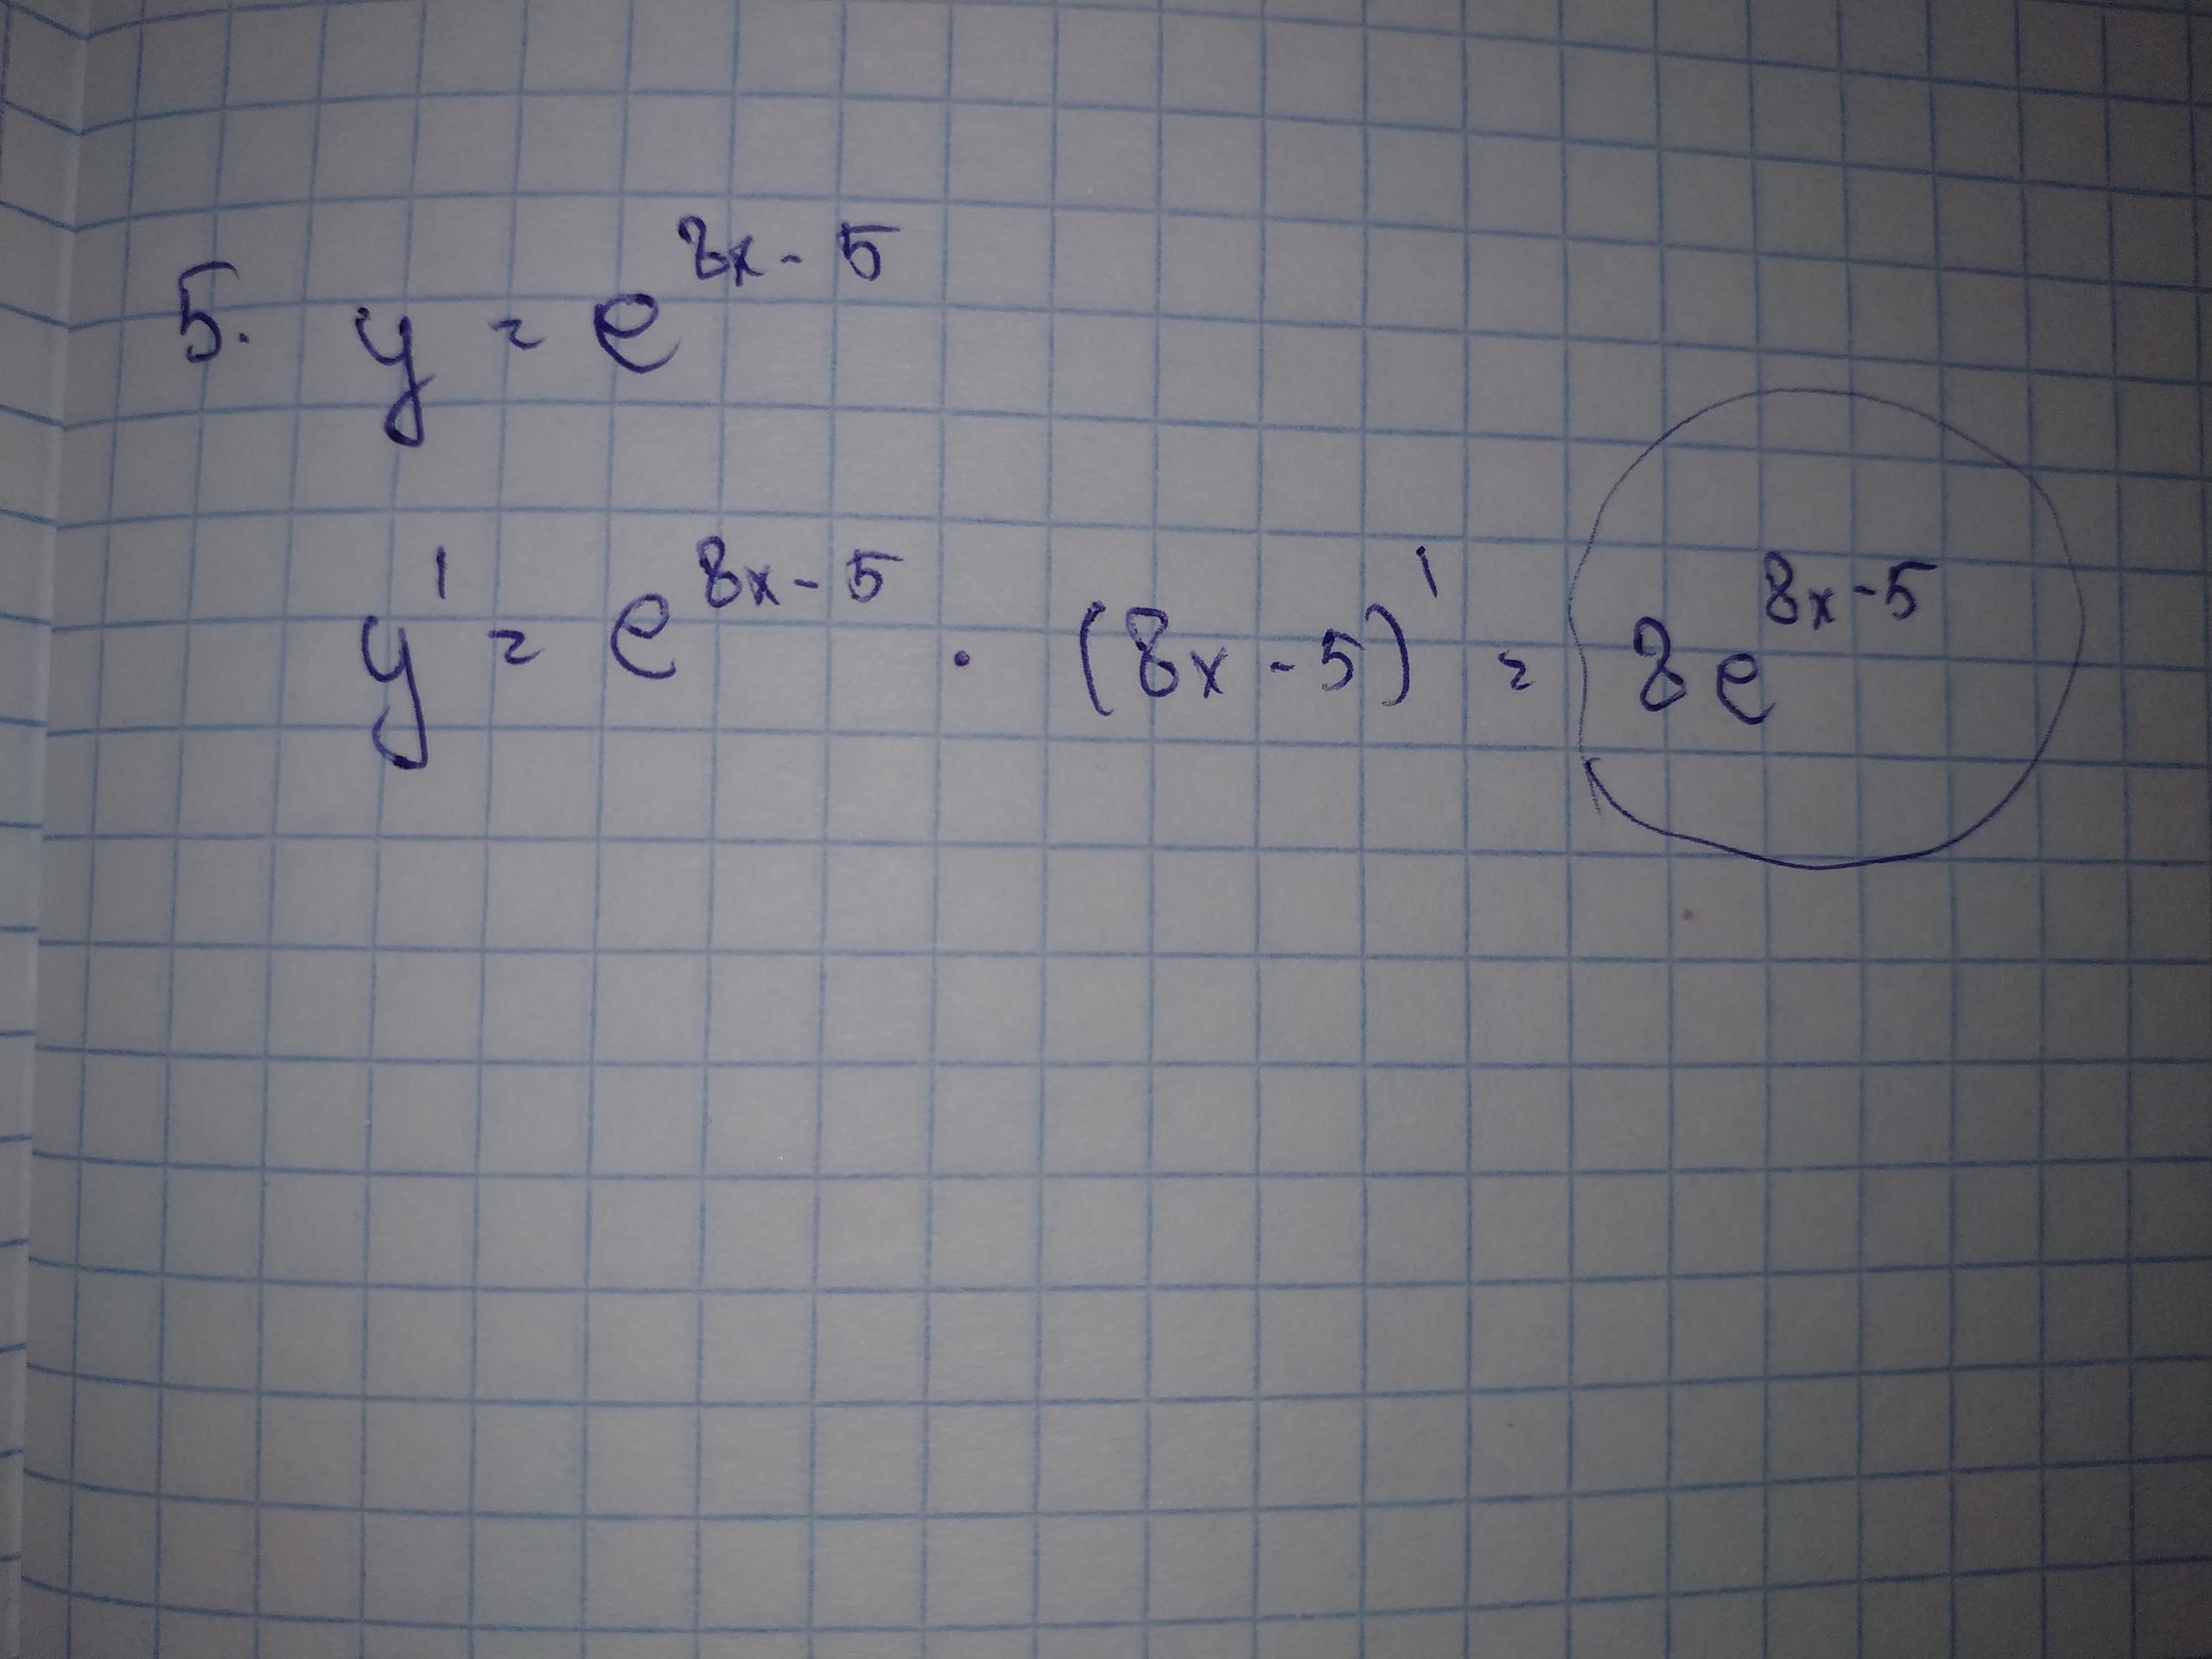 5. y = e^{8x - 5}
y' = e^{8x - 5} · (8x - 5)' = 8e^{8x - 5}